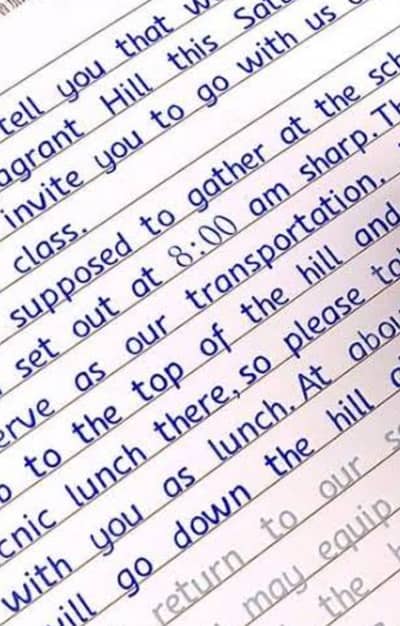 tell you that
agrant Hill this Sat
invite you to go with us
class.
supposed to gather at the sch
set out at 8:00 am sharp. Th
erve as our transportation.
to the top of the hill and
cnic lunch there, so please ta
with you as lunch. At abou
will go down the hill
return to our s
may equip
the